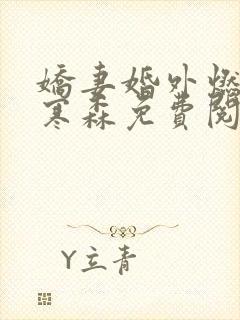 嬌妻婚外燃
寒森免費閱
Y立青